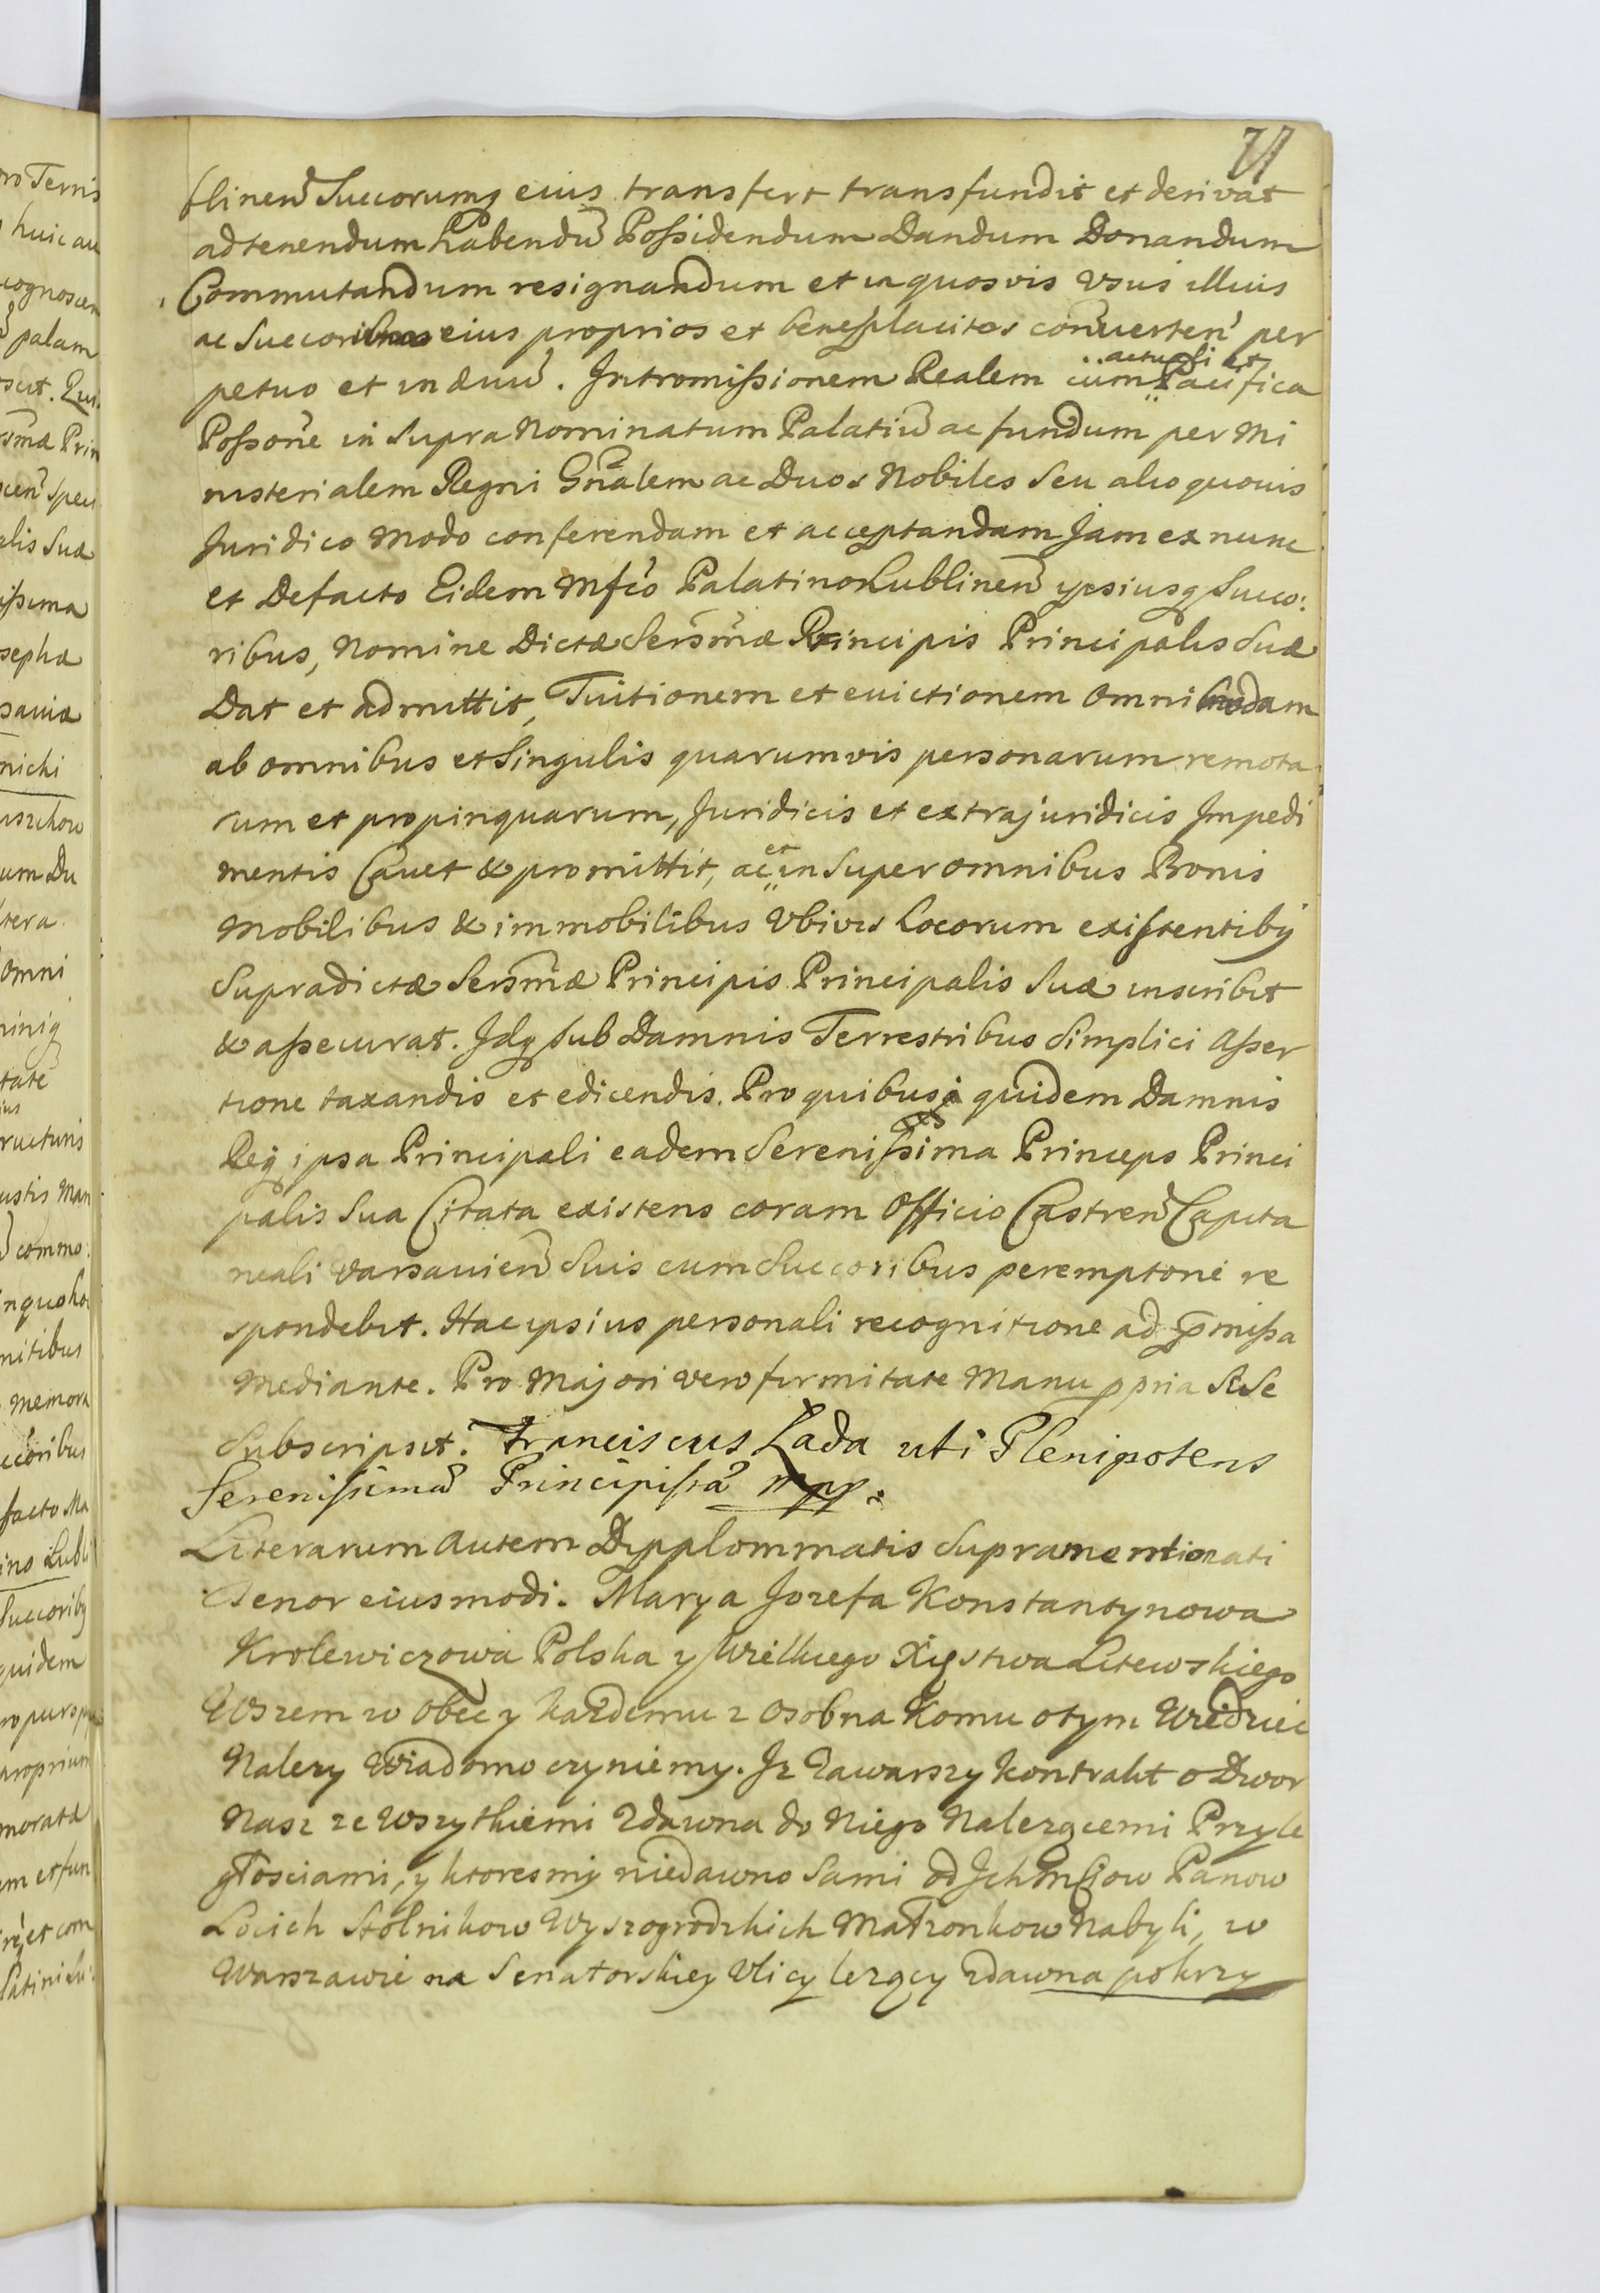 71
blinen Succorumq eius transfert transfundit et derivat
ad tenendum habendu Possidendum Dandum Donandum
Commutandum resignandum et in quosvis Usus illius
ac Succoribus eius proprios et beneplacitos conuerten per
petuo et in æuu. Intromissionem Realem cum actuali et Pacifica
Possone in supra Nominatum Palatiu ac fundum per Mi
nisterialem Regni Gnalem ac Duos Nobiles seu alio quouis
Juridico Modo conferendam et acceptandam Jam ex nunc
et Defacto Eidem Mfco Palatino Lublinen ipsiusq Succo:
ribus, Nomine Dictæ Sersmæ Principis Principalis Suæ
Dat et admittit, Tuitionem et euictionem Omnimodam
ab omnibus et singulis quarumvis personarum remota
rum et propinquarum, Juridicis et extrajuridicis Impedi
mentis Cauet & promittit, ac et in super omnibus Bonis
Mobilibus & immobilibus Ubivis Locorum existentibq
Supradictæ Sersmæ Principis Principalis Suæ inscribit
& assecurat. Idq sub Damnis Terrestribus simplici Asser
tione taxandis et edicendis. Pro quibus quidem Damnis
Req ipsa Principali eadem Serenissima Princeps Princi
palis Sua Citata existens coram Officio Castren Capita
neali Varsauien Suis cum Succoribus peremptorie re
spondebit. Hac ipsius personali recognitione ad pmissa
Mediante. Pro Majori vero firmitate Manu ppria Sese
Subscripsit. Franciscus Łada uti Plenipotens
Serenissimæ Principissæ mpp.
Literarum autem Dypplommatis Supramentionati
Tenor eiusmodi. Marya Jozefa Konstantynowa
Krolewiczowa Polska y Wielkiego Xięstwa Litewskiego
Wszem w obec y każdemu z osobna Komu o tym Wiedziec
Nalezy Wiadomo czyniemy. Iz Zawarszy kontrakt o Dwor
Nasz ze Wszytkiemi Zdawna do Niego Nalezącemi Przyle
głosciami, y ktoresmy niedawno Sami od Ich Mciow Panow
Locich Stolnikow Wyszogrodzkich Małzonkow Nabyli, w
Warszawie na Senatorskiey Vlicy lezący zdawna pokrzy